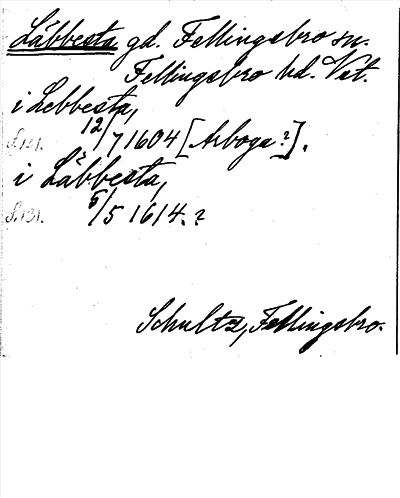 Läbbesta gd. Fellingsbro sn.
Fellingsbro hd. Vstm.
i Lebbesta,
12/7 1604 [Arboga?].
i Läbbesta,
5/5 1614.?
Schultz, Fellingsbro.